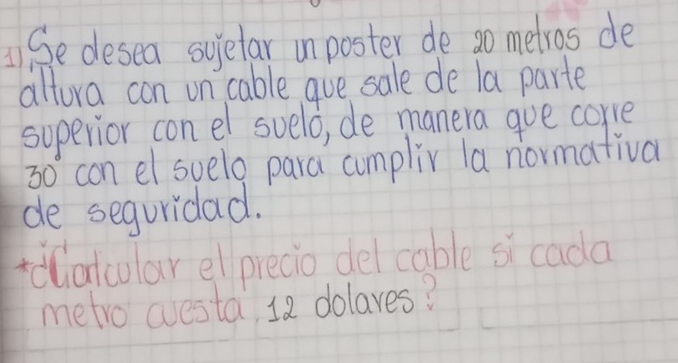 1) Se desea sujetar un poster de 20 metros de
altura con un cable que sale de la parte
superior con el suelo, de manera que corre
30 con el suelo para cumplir la normativa
de seguridad.
*¿Calcular el precio del cable si cada
metro cuesta 12 dolares?